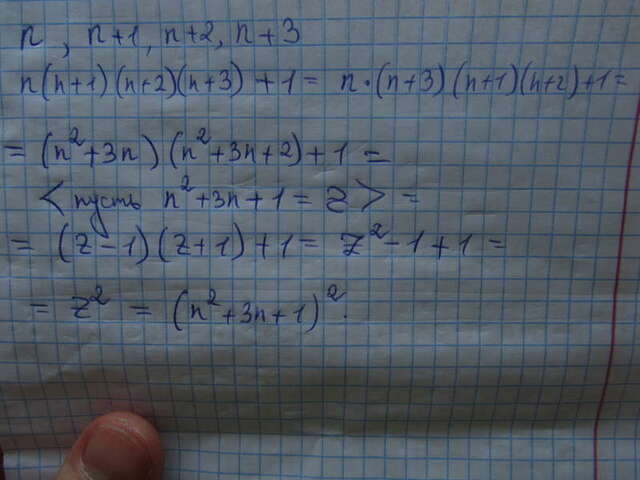 n, n+1, n+2, n+3
n(n+1)(n+2)(n+3)+1 = n·(n+3)(n+1)(n+2)+1=
= (n²+3n)(n²+3n+2)+1 =
<пусть n²+3n+1=z> =
= (z-1)(z+1)+1= z²-1+1=
= z² = (n²+3n+1)².